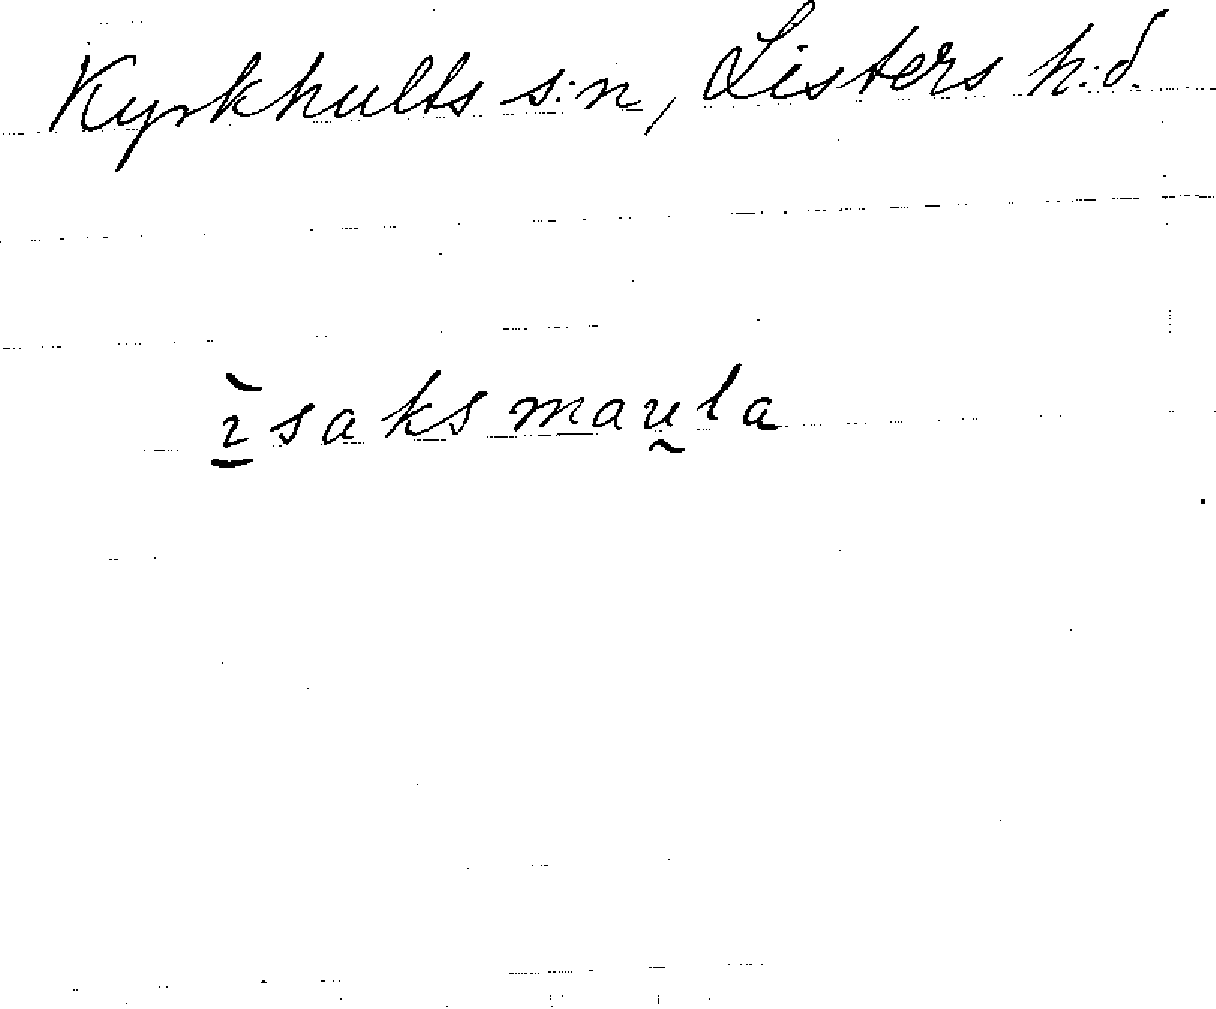 Kyrkhults s:n, Listers h:d.
ı̠̀saksmaṵla